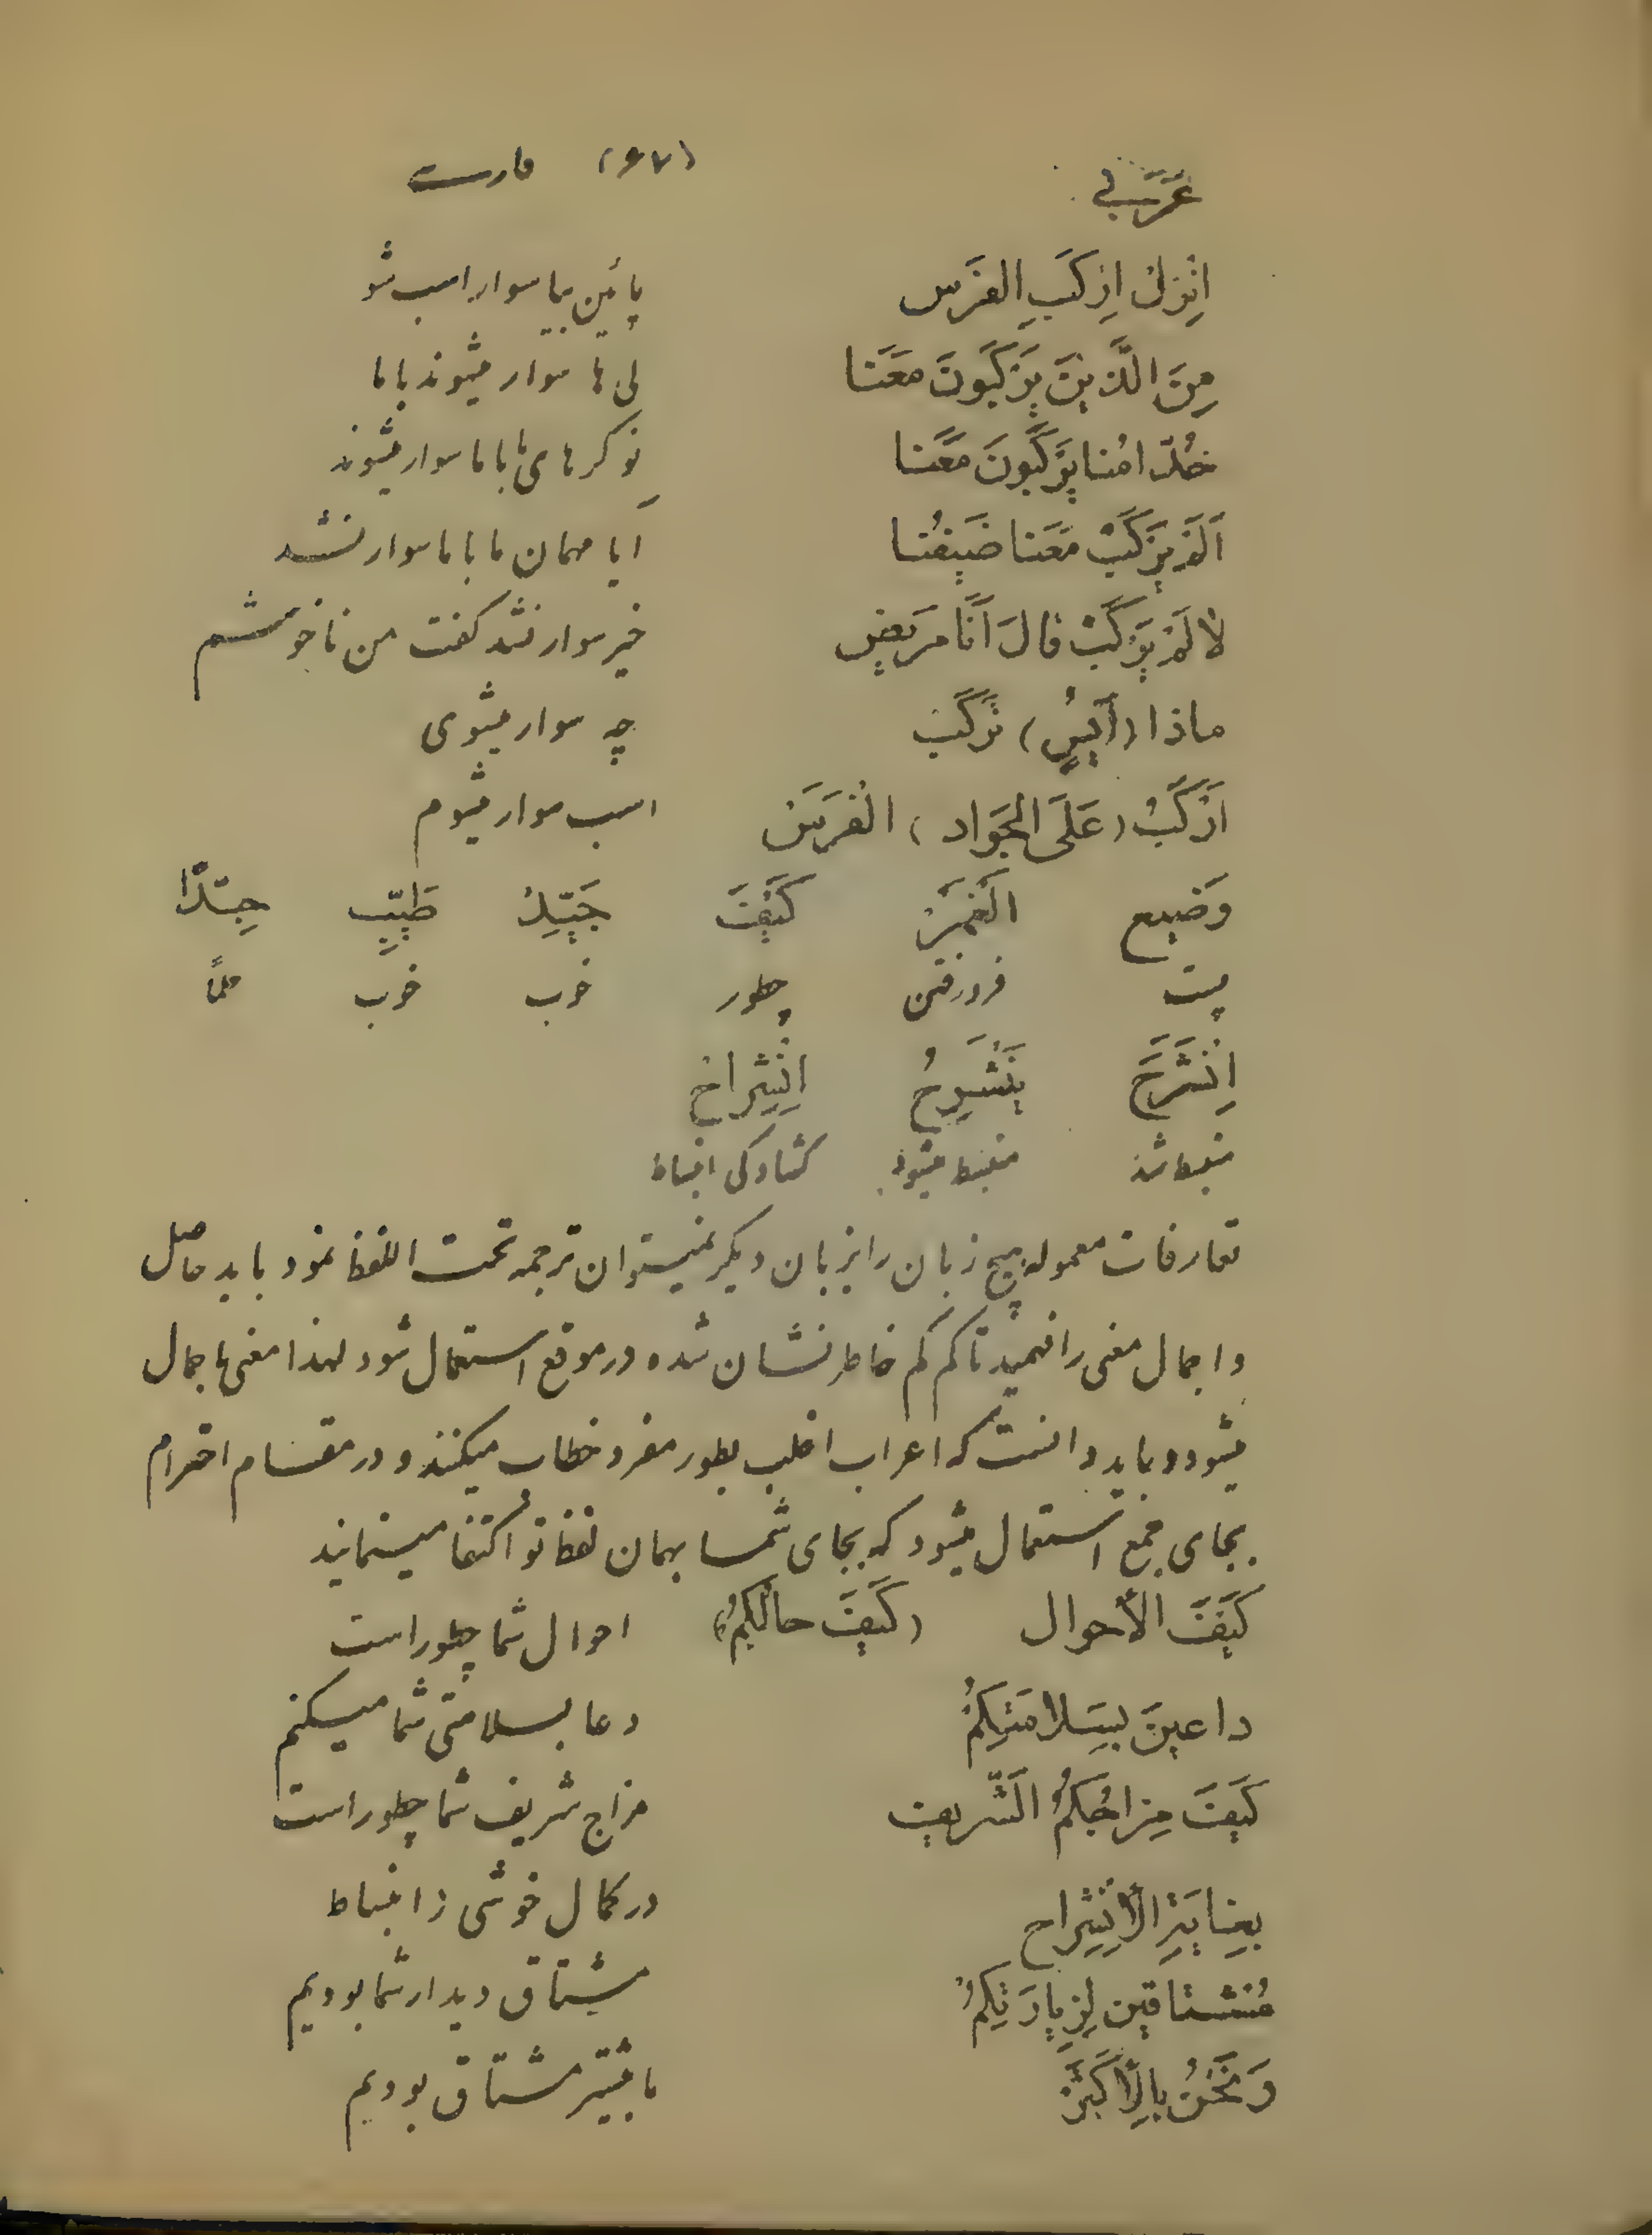 عَرَبي (۶۷) فارسی
اِنْزِلْ اِرْكَبِ الفَرَس پائین بیا سوار اسب شو
مِنَ الَّذينَ يَرْكَبُونَ مَعَنا کی ها سوار میشوند با ما
خُدّامُنا يَرْكَبُونَ مَعَنا نوکرهای ما با ما سوار میشوند
اَلَمْ يَرْكَبْ مَعَنا ضَيْفُنا آیا مهمان ما با ما سوار نشد
لا لَمْ يَرْكَبْ قالَ اَنَا مَريض خیر سوار نشد گفت من ناخوشم
ماذا (اَيْشٍ) تَرْكَبُ چه سوار میشوی
اَرْكَبُ (عَلَى الجَواد) الْفَرَسَ اسب سوار میشوم
وَضيع الْغَمْز كَيْفَ جَيِّدٌ طَيِّبٌ جِدّاً
پست فرورفتن چطور خوب خوب حکماً
اِنْشَرَحَ يَنْشَرِحُ اِنْشِراح
منبسط شد منبسط میشود گشادگی انبساط
تعارفات معموله هیچ زبان را بزبان دیگر نمیتوان ترجمه تحت اللفظ نمود باید حاصل
و اجمال معنی را فهمید تا کم کم خاطر نشان شده در موقع استعمال شود لهذا معنی باجمال
میشود و باید دانست که اعراب اغلب بطور مفرد خطاب میکنند و در مقام احترام
بجای جمع استعمال میشود که بجای شما بهمان لفظ تو اکتفا مینمایند
كَيْفَ الأحوال (كَيْفَ حالُكُمْ) احوال شما چطور است
داعينَ بِسَلامَتِكُمْ دعا بسلامتی شما میکنم
كَيْفَ مِزاجُكُمُ الشَّريف مزاج شریف شما چطور است
بِغايَةِ الأِنْشِراح در کمال خوشی و انبساط
مُشتاقين لِزِيارَتِكُمْ مشتاق دیدار شما بودیم
وَنَحْنُ بِالأَكْثَر ما بیشتر مشتاق بودیم